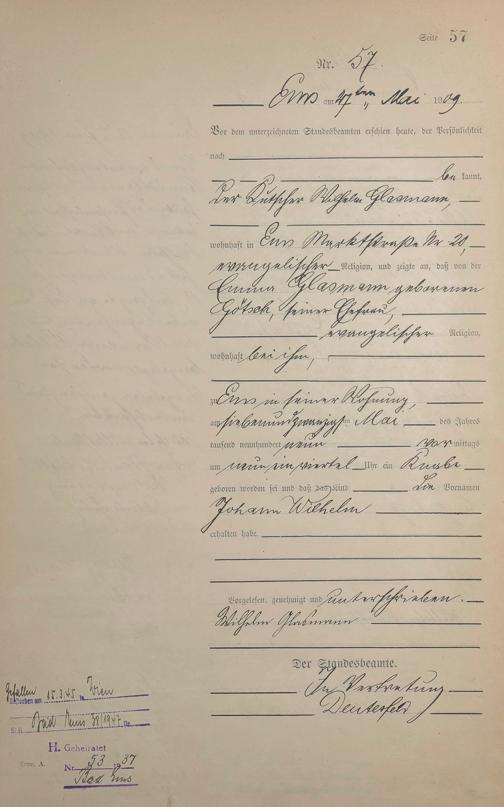 Seite 57
Nr. 57.
Ems am 27ten Mai 1909.
Vor dem unterzeichneten Standesbeamten erschien heute, der Persönlichkeit
nach
bekannt,
der Kutscher Wilhelm Glasmann,
wohnhaft in Ems Marktstraße Nr. 20,
evangelischer Religion, und zeigte an, daß von der
Emma Glasmann geborenen
Götsch, seiner Ehefrau,
evangelischer Religion,
wohnhaft bei ihm,
zu Ems in seiner Wohnung,
am siebenundzwanzigsten Mai des Jahres
tausend neunhundert neun vormittags
um neun einviertel Uhr ein Knabe
geboren worden sei und daß das Kind die Vornamen
Johann Wilhelm
erhalten habe.
Vorgelesen, genehmigt und unterschrieben.
Wilhelm Glasmann
Der Standesbeamte.
In Vertretung
Gefallen 15.3.45 in Wien
Gestorben am
St.A. Bad Ems 38/1947 Nr.
H. Geheiratet
Nr. 53 1937
Bad Ems